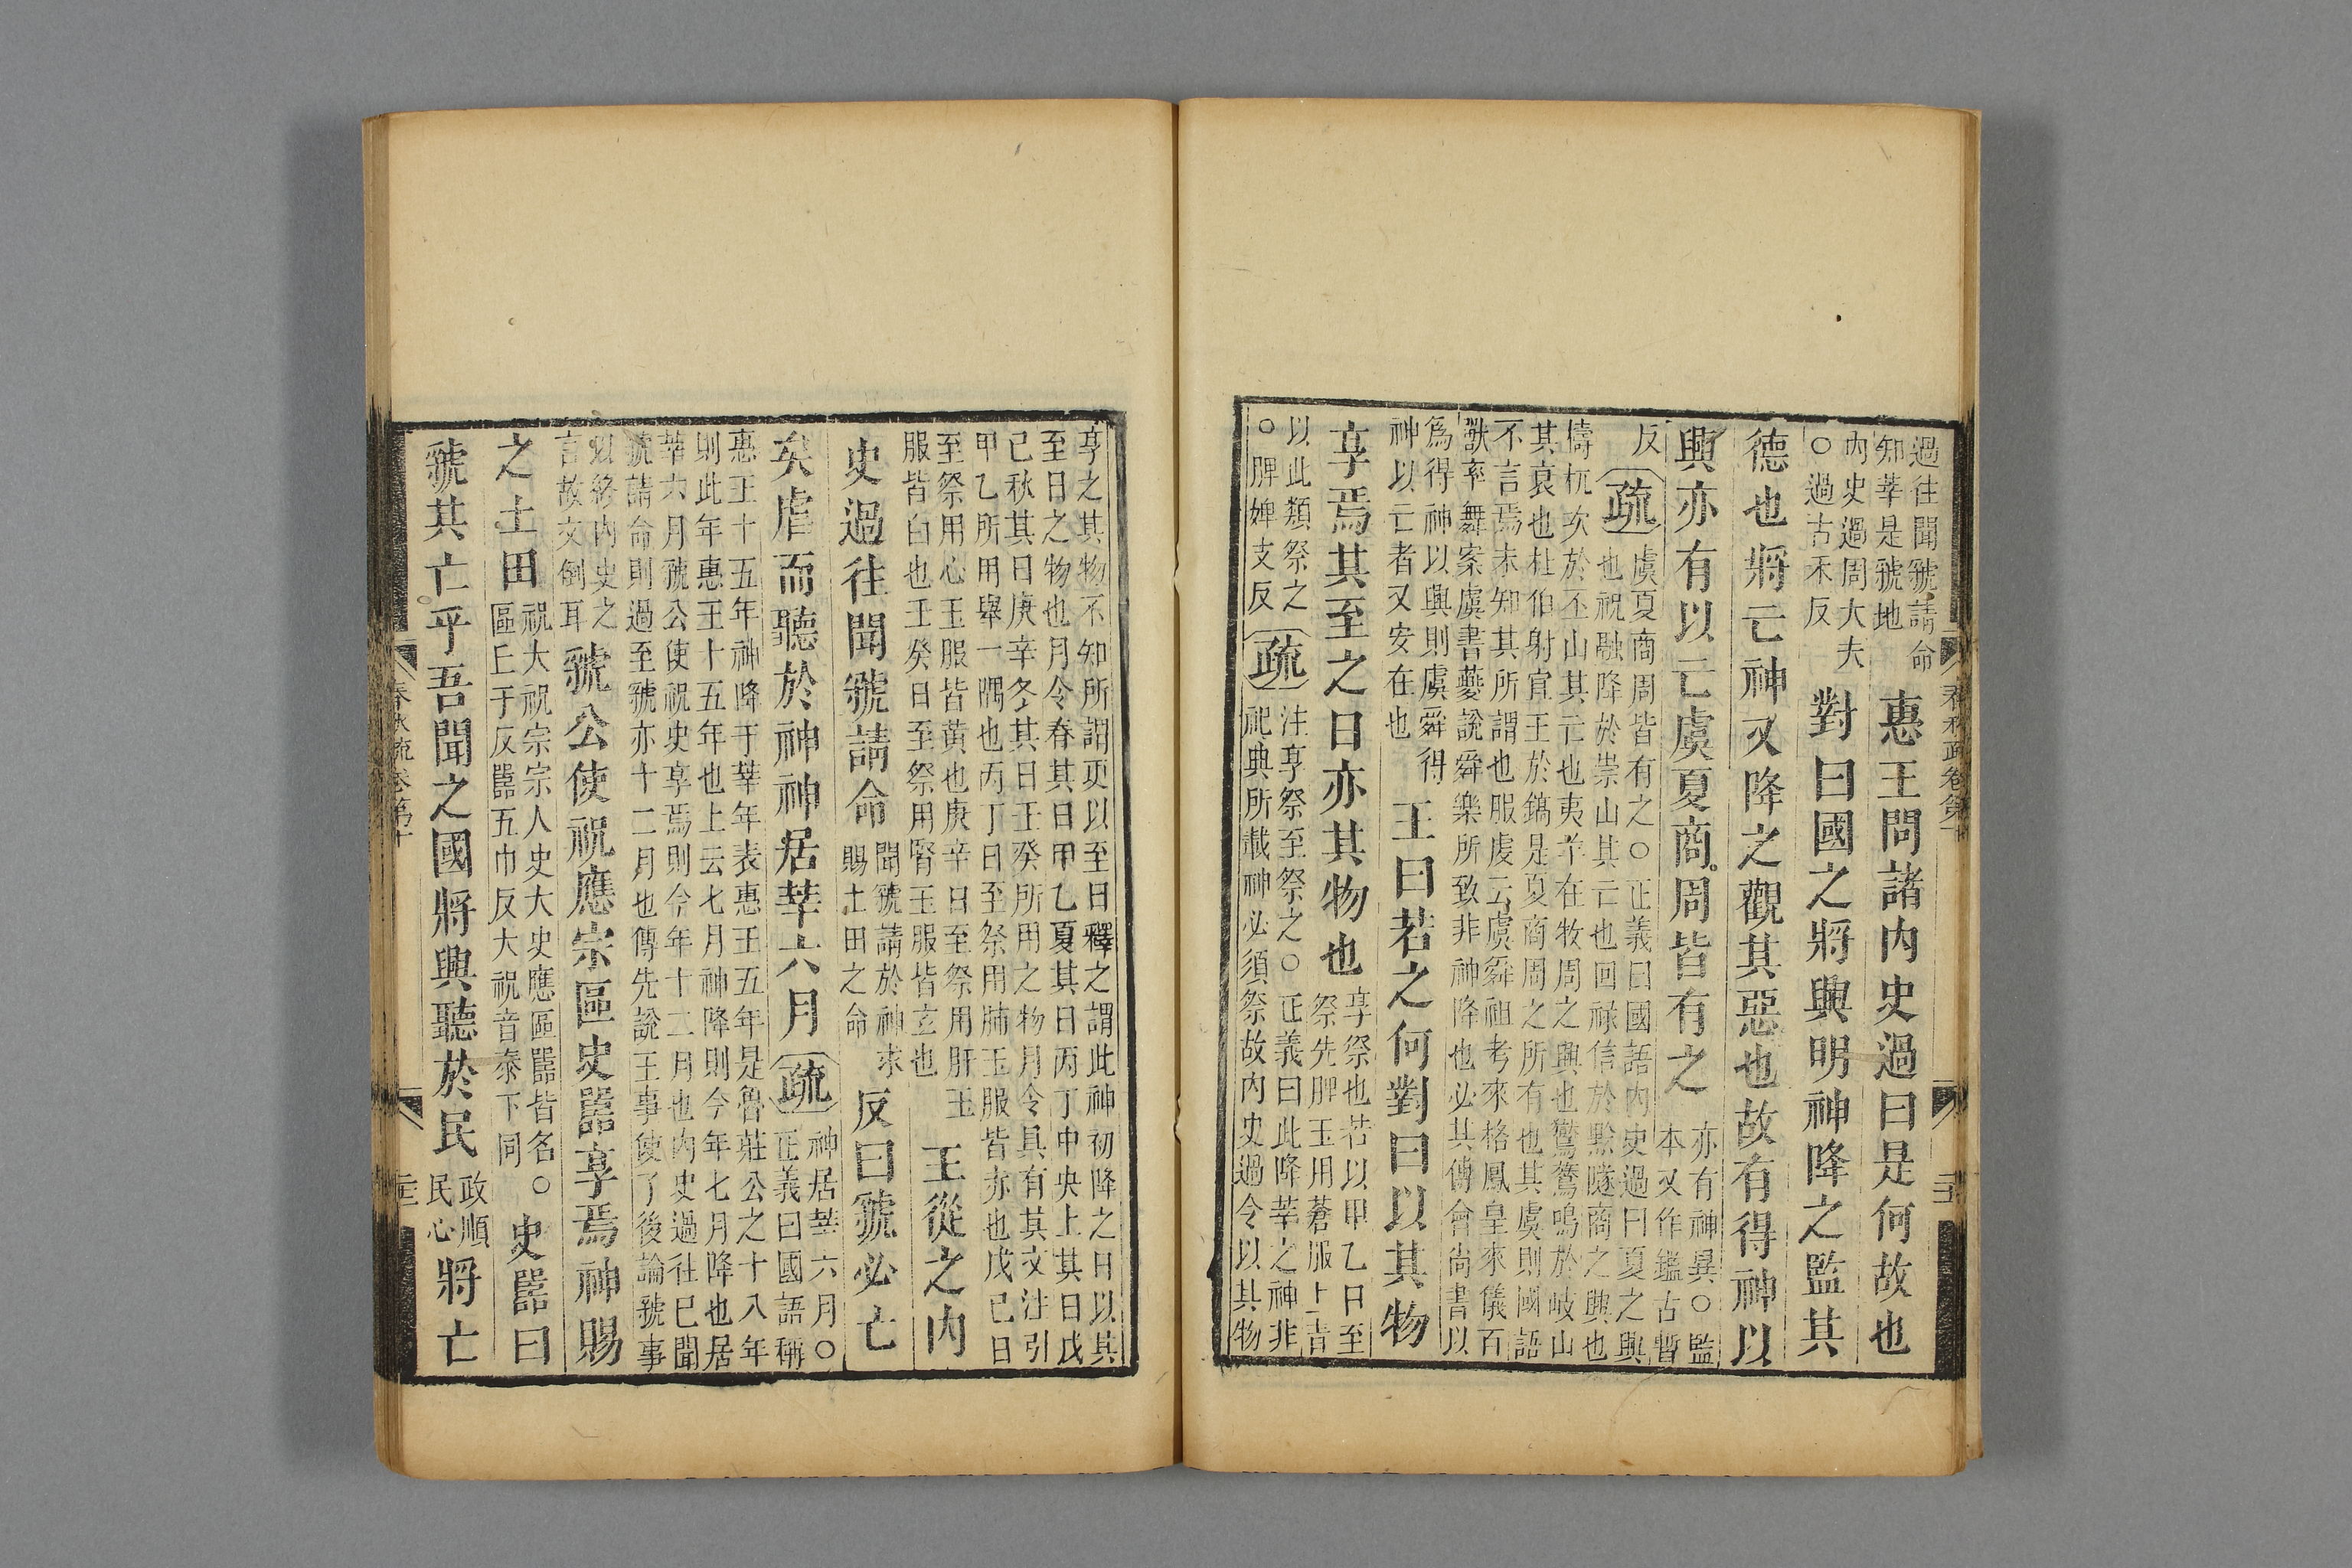 春秋疏卷第十
過往聞虢請命
知莘是虢地
惠王問諸內史過曰是何故也
內史過周大夫
○過古禾反
對曰國之將興明神降之監其
德也將亡神又降之觀其惡也故有得神以
興亦有以亡虞夏商周皆有之
亦有神異○監
本又作鑑古暫
反
疏
虞夏商周皆有之○正義曰國語內史過曰夏之興
也祝融降於崇山其亡也回祿信於黔隧商之興也
檮杌次於丕山其亡也夷羊在牧周之興也鸑鷟鳴於岐山
其衰也杜伯射宣王於鎬是夏商周之所有也其虞則國語
不言焉未知其所謂也服虔云虞舜祖考來格鳳皇來儀百
獸率舞案虞書夔說舜樂所致非神降也必其傳會尚書以
爲得神以興則虞舜得
神以亡者又安在也
王曰若之何對曰以其物
享焉其至之日亦其物也
享祭也若以甲乙日至
祭先脾玉用蒼服上青
以此類祭之
○脾婢支反
疏
注享祭至祭之○正義曰此降莘之神非
祀典所載神必須祭故內史過令以其物
享之其物不知所謂更以至日釋之謂此神初降之日以其
至日之物也月令春其日甲乙夏其日丙丁中央土其日戊
己秋其日庚辛冬其日壬癸所用之物月令具有其文注引
甲乙所用舉一隅也丙丁日至祭用肺玉服皆赤也戊己日
至祭用心玉服皆黃也庚辛日至祭用肝玉
服皆白也壬癸日至祭用腎玉服皆玄也
王從之內
史過往聞虢請命
聞虢請於神求
賜土田之命
反曰虢必亡
矣虐而聽於神神居莘六月
疏
神居莘六月○
正義曰國語稱
惠王十五年神降于莘年表惠王五年是魯莊公之十八年
則此年惠王十五年也上云七月神降則今年七月降也居
莘六月虢公使祝史享焉則今年十二月也內史過往已聞
虢請命則過至虢亦十二月也傳先說王事使了後論虢事
以終內史之
言故文倒耳
虢公使祝應宗區史嚚享焉神賜
之土田
祝大祝宗宗人史大史應區嚚皆名○
區丘于反嚚五巾反大祝音泰下同
史嚚曰
虢其亡乎吾聞之國將興聽於民
政順
民心
將亡
春秋疏卷第十